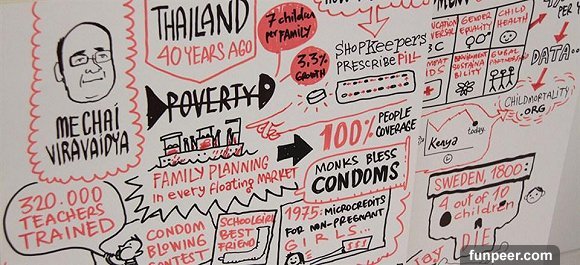 THAILAND
40 YEARS AGO
7 children
per FAMILY
3.3%
GROWTH
SHOPKEEPERS
PRESCRIBE PILL
POVERTY
MECHAI
VIRAVAIDYA
FAMILY PLANNING
in every floating MARKET
100% PEOPLE
COVERAGE
MONKS BLESS
CONDOMS
320.000
TEACHERS
TRAINED
CONDOM
BLOWING
CONTEST
SCHOOLGIRL
BEST
FRIEND
1975: MICROCREDITS
FOR NON-PREGNANT
GIRLS...
GENDER
EQUALITY
CHILD
HEALTH
DATA
CHILDMORTALITY
.ORG
Kenya
today.
SWEDEN, 1800:
4 out of 10
children
DIE
funpeer.com